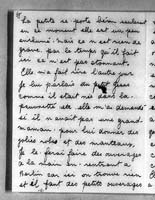 La petite se porte bien seulement
en ce moment elle est un peu
enrhumée mais ce n'est rien de
grave, par le temps qu'il fait
ici ce n'est pas étonnant.
Elle m'a fait rire l'autre jour
Je lui parlais du père
comme il était né dans la
elle m'a demandé
si il n'avait pas une grand-
maman, pour lui donner des
jolies robes et des manteaux,
Je le ferai faire des ouvrages
à la main en rentrant à
Berlin car ici on trouve rien
et il faut des petits ouvrages